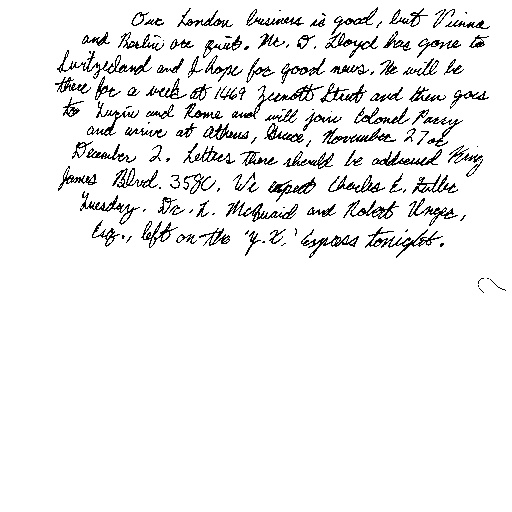 Our London business is good, but Vienna
and Berlin are quiet. Mr. D. Lloyd has gone to
Switzerland and I hope for good news. He will be
there for a week at 1469 Zermott Street and then goes
to Turin and Rome and will join Colonel Parry
and arrive at Athens, Greece, November 27 or
December 2. Letters there should be addressed King
James Blvd. 3580. We expect Charles E. Fuller
Tuesday. Dr. L. McQuaid and Robert Unger,
Esq., left on the 'Y.X.' Express tonight.